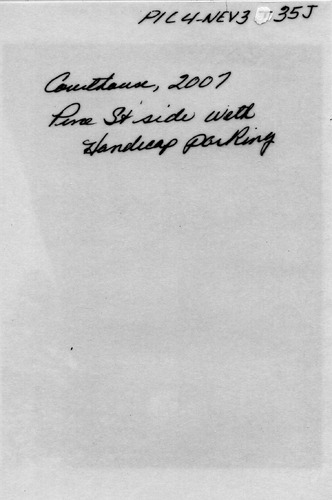 PIC4-NEV3 35J
Courthouse, 2007
Pine St side with
Handicap parking